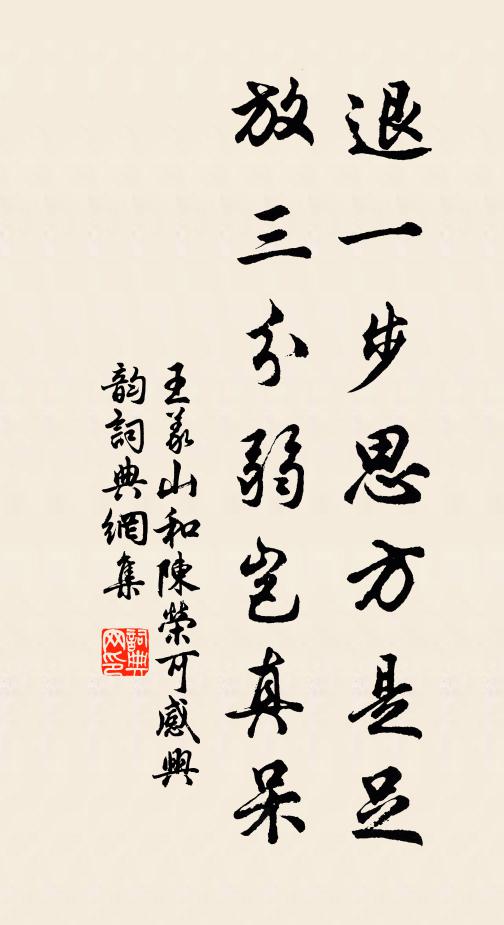 退一步思方是足
放三分弱豈真呆
王義山和陳榮可感興
韵詞典網集
詞典网印